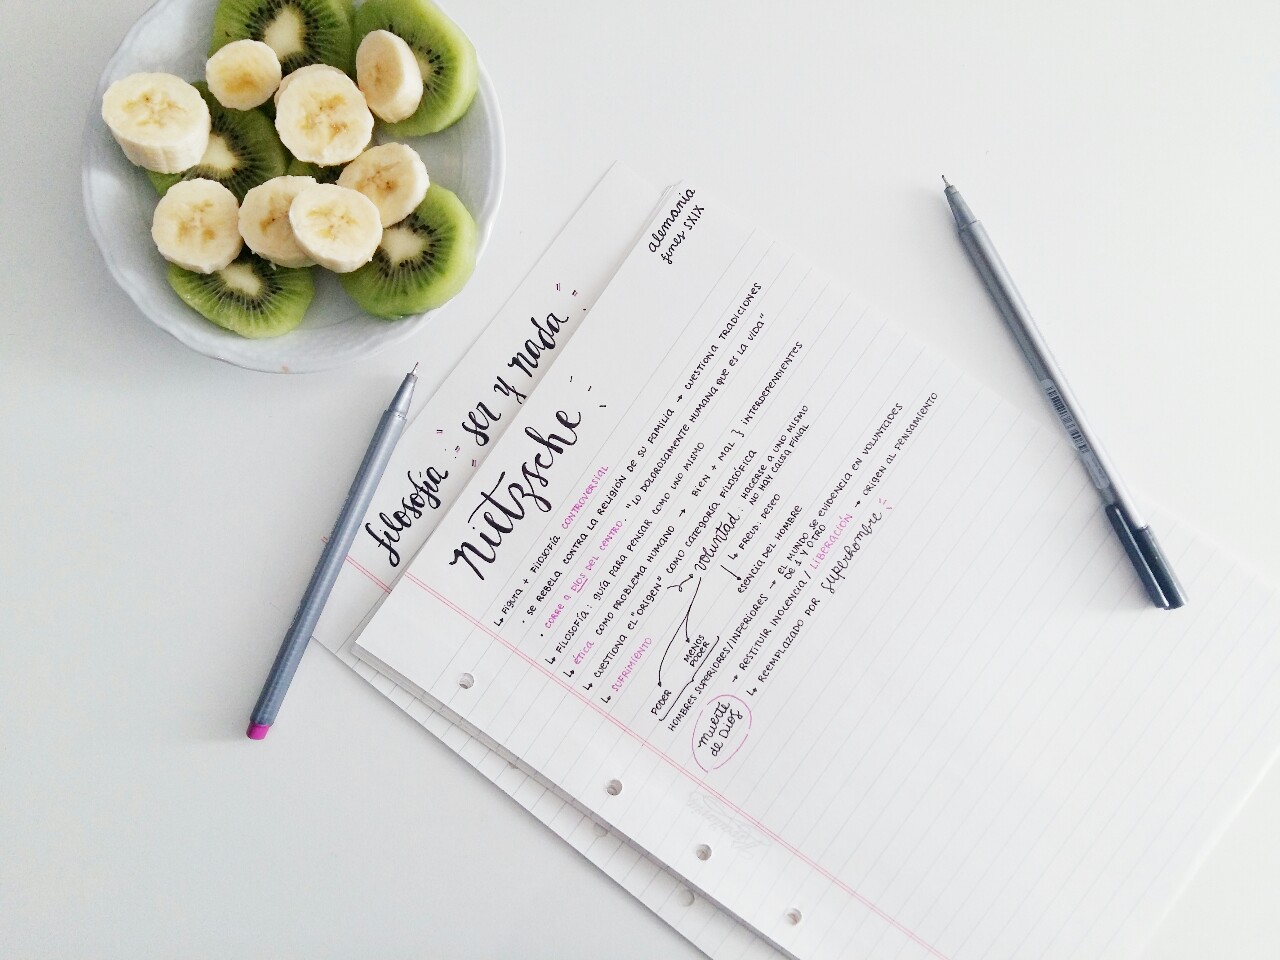 filosofía : ser y nada
alemania
fines SXIX
Nietzsche
↳ FIGURA + FILOSOFÍA CONTROVERSIAL
· SE REBELA CONTRA LA RELIGIÓN DE SU FAMILIA → CUESTIONA TRADICIONES
· CORRE A DIOS DEL CENTRO. "LO DOLOROSAMENTE HUMANA QUE ES LA VIDA"
↳ FILOSOFÍA: GUÍA PARA PENSAR COMO UNO MISMO
↳ ÉTICA COMO PROBLEMA HUMANO → BIEN + MAL } INTERDEPENDIENTES
↳ CUESTIONA EL "ORIGEN" COMO CATEGORÍA FILOSÓFICA
↳ SUFRIMIENTO
voluntad: HACERSE A UNO MISMO
NO HAY CAUSA FINAL
↳ FREUD: DESEO
ESENCIA DEL HOMBRE
PODER
MENOS
PODER
HOMBRES SUPERIORES/INFERIORES → EL MUNDO SE EVIDENCIA EN VOLUNTADES
DE 1 Y OTRO
muerte
de Dios
→ RESTITUIR INOCENCIA / LIBERACIÓN → ORIGEN AL PENSAMIENTO
↳ REEMPLAZADO POR superhombre